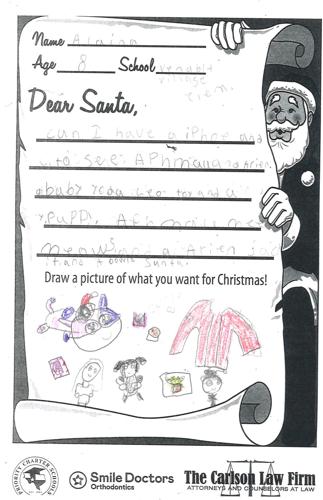 Name Alaina
Age 8 School venable
village
elem.
Dear Santa,
can I have a iPhone and
to see APhmau and Arien
a baby Yoda Lego toy and a
PUPPY, Aphmau me
meows and a Arien
it and Santa.
Draw a picture of what you want for Christmas!
PRIORITY CHARTER SCHOOLS
Smile Doctors
Orthodontics
The Carlson Law Firm
ATTORNEYS AND COUNSELORS AT LAW